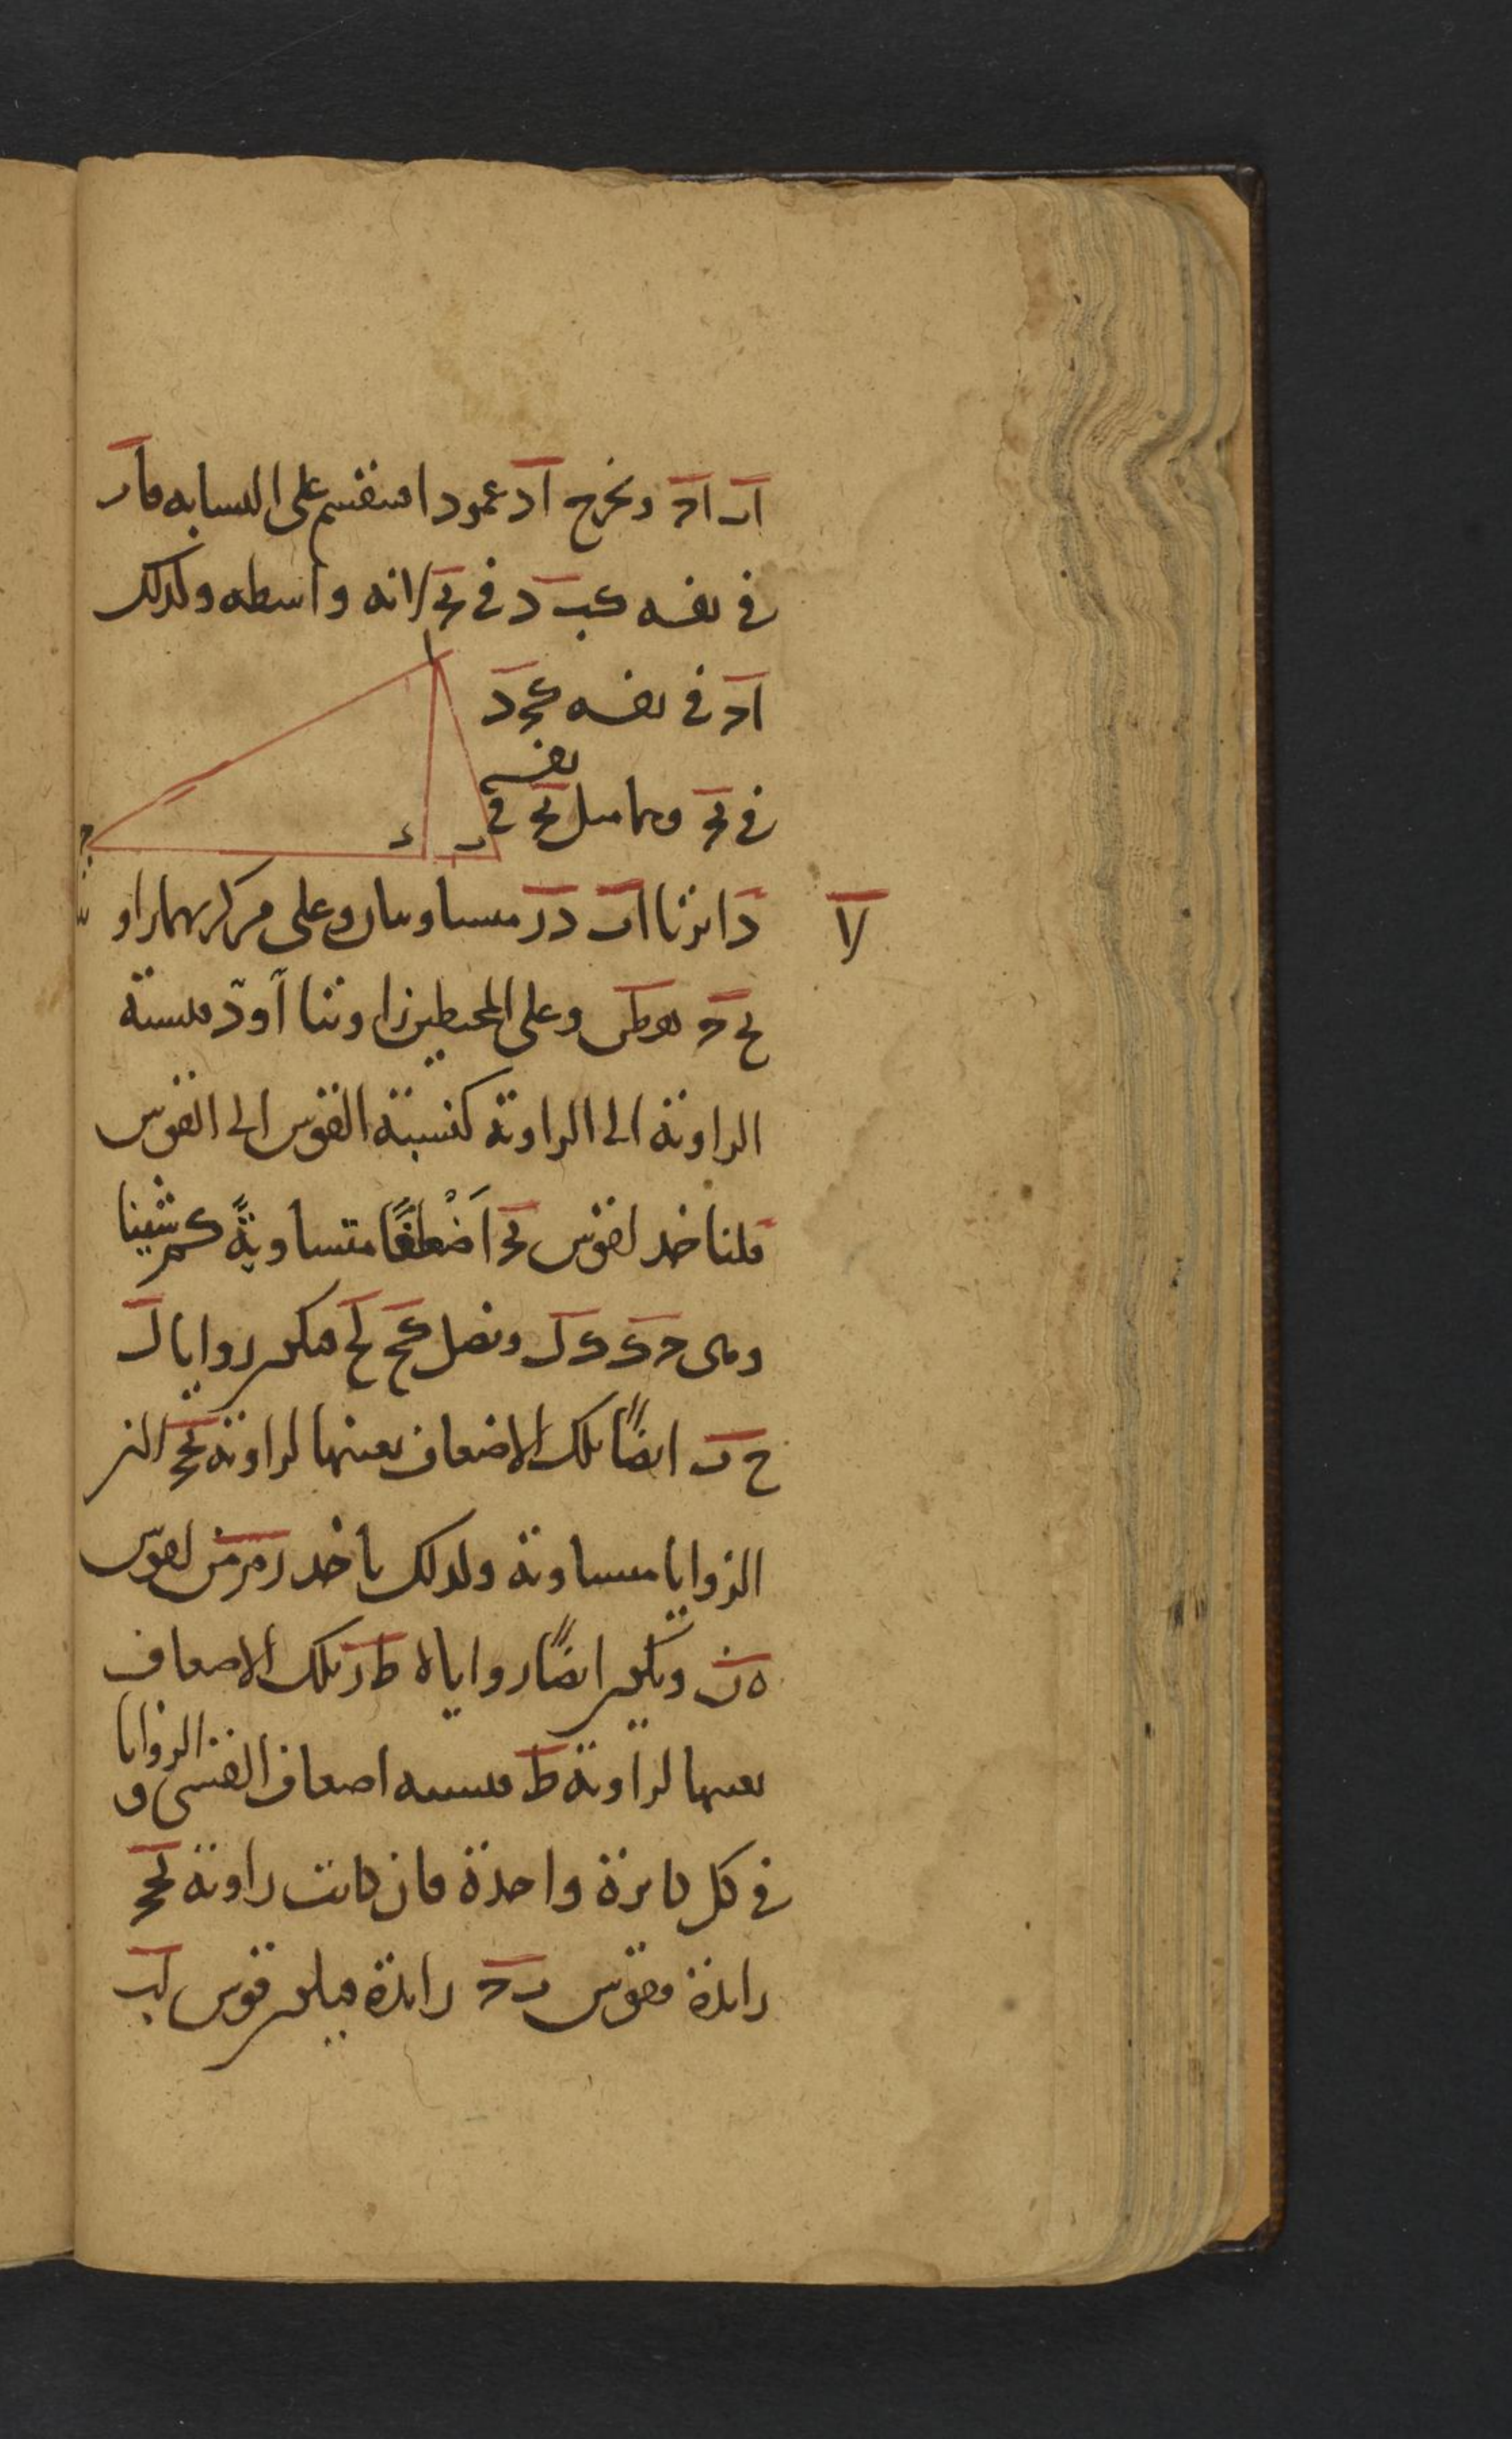 اب اج ونخرج اد عمودا فينقسم على المشابهة فاب
في نفسه كبد في بج لانه واسطه وكذلك
اج في نفسه كجد
في بج وهما مثل بج في
نفسه
لا
دائرتا اب در متساويتان وعلى مركزيهما زاويتا
بحج هطر وعلى المحيطين زاويتا آ و د فنسبة
الزاوية الى الزاوية كنسبة القوس الى القوس
فلناخذ لقوس بج اَضْعافًا متساويةً كم شينا
وهى جك كل ونصل كح لح فيكون زوايا ل
ح ب ايضًا تلك الاضعاف بعينها لزاوية بحج اذ
الزوايا متساوية وكذلك ناخذ رم من لقوس
هر ويكون ايضًا زوايا ه ط ر تلك الاضعاف
بعينها لزاوية ط فنسبة اضعاف القسى و
الزوايا
في كل دائرة واحدة فان كانت زاوية لحج
زائدة فقوس بج زائدة فيكون قوس لب